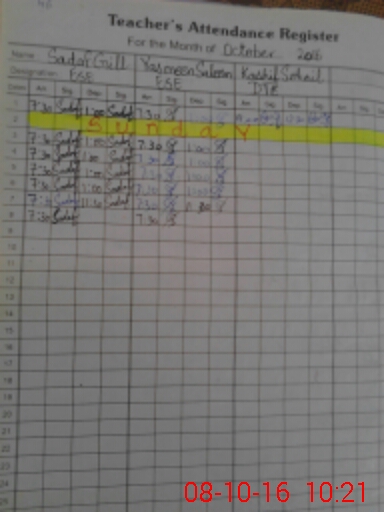 Teacher's Attendance Register
For the Month of October 2016
Name Sadaf Gill Yasmeen Saleem Kashif Sohail
Designation ESE ESE DTE
Date Arr Sig Dep Sig Arr Sig Dep Sig Arr Sig Dep Sig Arr Sig
1 7:30 Sadaf 1:00 Sadaf 7:30
2 Sunday
3 7:30 Sadaf 1:00 Sadaf 7:30 1:00
4 7:30 Sadaf 1:00 Sadaf 7:30 1:00
5 7:30 Sadaf 1:00 Sadaf 7:30 1:00
6 7:30 Sadaf 1:00 Sadaf 7:30 1:00
7 7:30 Sadaf 11:30 Sadaf 7:30
8 7:30 Sadaf 7:30
9
10
11
12
13
14
15
16
17
18
19
20
21
22
23
24
25
08-10-16 10:21